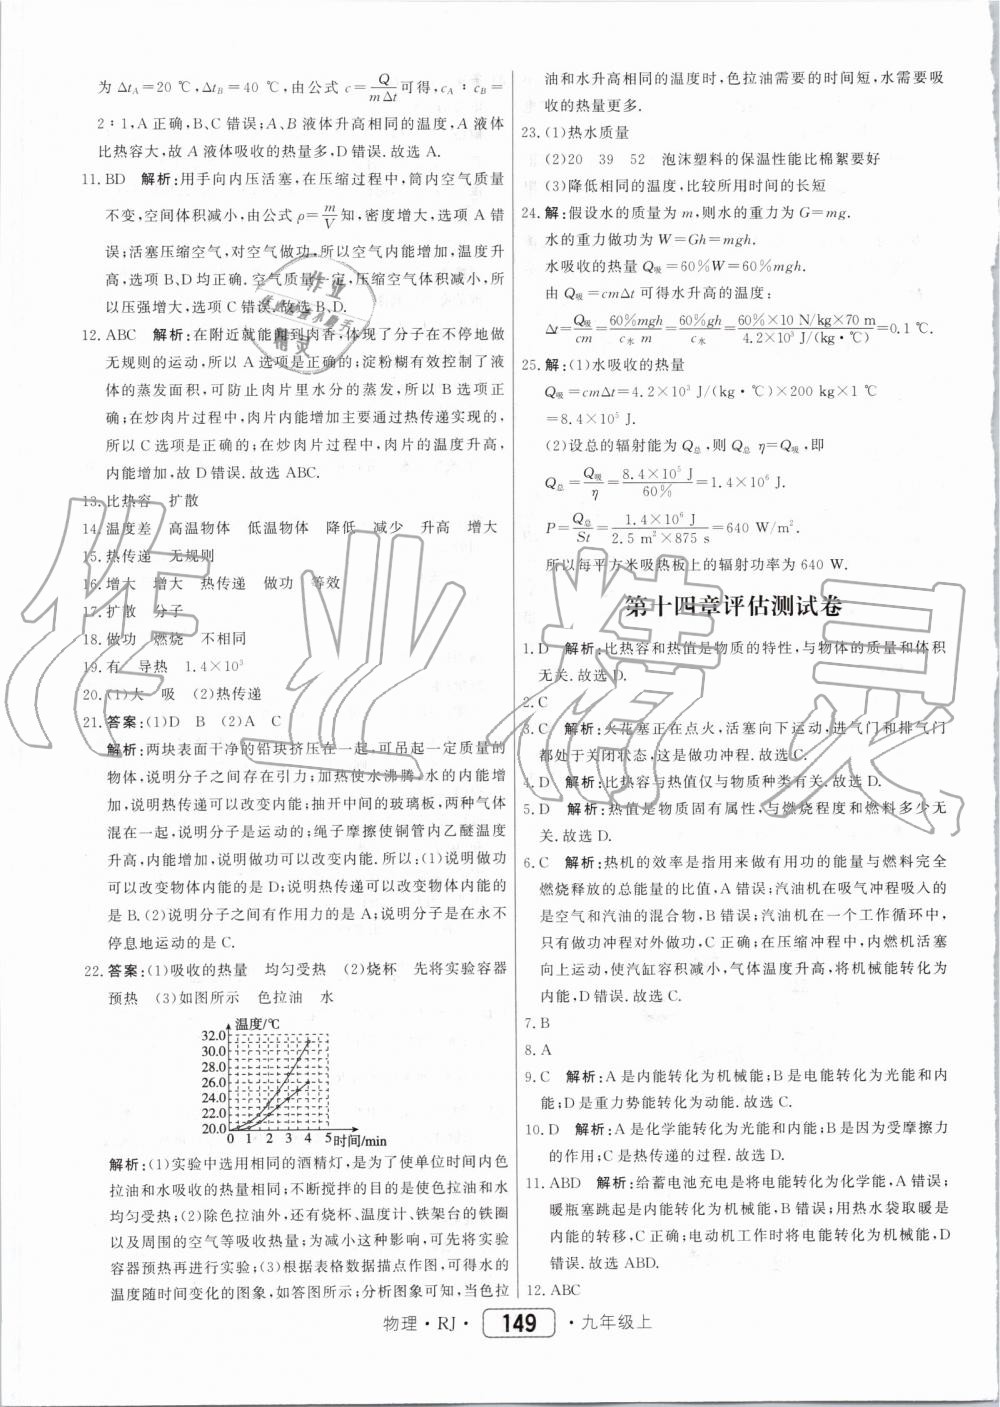 为 Δt_A=20 ℃,Δt_B=40 ℃,由公式 c=Q/(mΔt)可得,c_A∶c_B=
2∶1,A 正确,B、C 错误;A、B 液体升高相同的温度,A 液体
比热容大,故 A 液体吸收的热量多,D 错误.故选 A.
11. BD 解析:用手向内压活塞,在压缩过程中,筒内空气质量
不变,空间体积减小,由公式 ρ=m/V知,密度增大,选项 A 错
误;活塞压缩空气,对空气做功,所以空气内能增加,温度升
高,选项 B、D 均正确.空气质量一定,压缩空气体积减小,所
以压强增大,选项 C 错误.故选 B、D.
12. ABC 解析:在附近就能闻到肉香,体现了分子在不停地做
无规则的运动,所以 A 选项是正确的;淀粉糊有效控制了液
体的蒸发面积,可防止肉片里水分的蒸发,所以 B 选项正
确;在炒肉片过程中,肉片内能增加主要通过热传递实现的,
所以 C 选项是正确的;在炒肉片过程中,肉片的温度升高,
内能增加,故 D 错误.故选 ABC.
13. 比热容 扩散
14. 温度差 高温物体 低温物体 降低 减少 升高 增大
15. 热传递 无规则
16. 增大 增大 热传递 做功 等效
17. 扩散 分子
18. 做功 燃烧 不相同
19. 有 导热 1.4×10³
20. (1)大 吸 (2)热传递
21. 答案:(1)D B (2)A C
解析:两块表面干净的铅块挤压在一起,可吊起一定质量的
物体,说明分子之间存在引力;加热使水沸腾,水的内能增
加,说明热传递可以改变内能;抽开中间的玻璃板,两种气体
混在一起,说明分子是运动的;绳子摩擦使铜管内乙醚温度
升高,内能增加,说明做功可以改变内能.所以:(1)说明做功
可以改变物体内能的是 D;说明热传递可以改变物体内能的
是 B.(2)说明分子之间有作用力的是 A;说明分子是在永不
停息地运动的是 C.
22. 答案:(1)吸收的热量 均匀受热 (2)烧杯 先将实验容器
预热 (3)如图所示 色拉油 水
温度/℃
32.0
30.0
28.0
26.0
24.0
22.0
20.0
0 1 2 3 4 5 时间/min
解析:(1)实验中选用相同的酒精灯,是为了使单位时间内色
拉油和水吸收的热量相同;不断搅拌的目的是使色拉油和水
均匀受热;(2)除色拉油外,还有烧杯、温度计、铁架台的铁圈
以及周围的空气等吸收热量;为减小这种影响,可先将实验
容器预热再进行实验;(3)根据表格数据描点作图,可得水的
温度随时间变化的图象,如答图所示;分析图象可知,当色拉
油和水升高相同的温度时,色拉油需要的时间短,水需要吸
收的热量更多.
23. (1)热水质量
(2)20 39 52 泡沫塑料的保温性能比棉絮要好
(3)降低相同的温度,比较所用时间的长短
24. 解:假设水的质量为 m,则水的重力为 G=mg.
水的重力做功为 W=Gh=mgh.
水吸收的热量 Q吸=60%W=60%mgh.
由 Q吸=cmΔt 可得水升高的温度:
Δt=Q吸/cm=60%mgh/(c水 m)=60%gh/c水=(60%×10 N/kg×70 m)/(4.2×10³ J/(kg·℃))=0.1 ℃.
25. 解:(1)水吸收的热量
Q吸=cmΔt=4.2×10³ J/(kg·℃)×200 kg×1 ℃
=8.4×10⁵ J.
(2)设总的辐射能为 Q总,则 Q总 η=Q吸,即
Q总=Q吸/η=8.4×10⁵ J/60%=1.4×10⁶ J.
P=Q总/St=1.4×10⁶ J/(2.5 m²×875 s)=640 W/m².
所以每平方米吸热板上的辐射功率为 640 W.
第十四章评估测试卷
1. D 解析:比热容和热值是物质的特性,与物体的质量和体积
无关.故选 D.
2. C
3. C 解析:火花塞正在点火,活塞向下运动,进气门和排气门
都处于关闭状态,这是做功冲程.故选 C.
4. D 解析:比热容与热值仅与物质种类有关.故选 D.
5. D 解析:热值是物质固有属性,与燃烧程度和燃料多少无
关.故选 D.
6. C 解析:热机的效率是指用来做有用功的能量与燃料完全
燃烧释放的总能量的比值,A 错误;汽油机在吸气冲程吸入的
是空气和汽油的混合物,B 错误;汽油机在一个工作循环中,
只有做功冲程对外做功,C 正确;在压缩冲程中,内燃机活塞
向上运动,使汽缸容积减小,气体温度升高,将机械能转化为
内能,D 错误.故选 C.
7. B
8. A
9. C 解析:A 是内能转化为机械能;B 是电能转化为光能和内
能;D 是重力势能转化为动能.故选 C.
10. D 解析:A 是化学能转化为光能和内能;B 是因为受摩擦力
的作用;C 是热传递的过程.故选 D.
11. ABD 解析:给蓄电池充电是将电能转化为化学能,A 错误;
暖瓶塞跳起是内能转化为机械能,B 错误;用热水袋取暖是
内能的转移,C 正确;电动机工作时将电能转化为机械能,D
错误.故选 ABD.
12. ABC
物理·RJ· 149 ·九年级上
作业精灵
作业
精灵